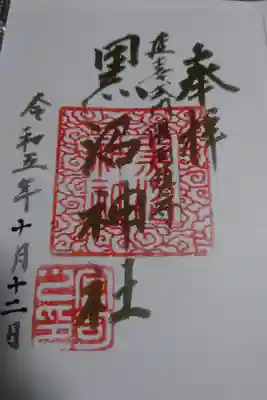 奉拝
延喜式内
黒沼神社
令和五年十月十二日